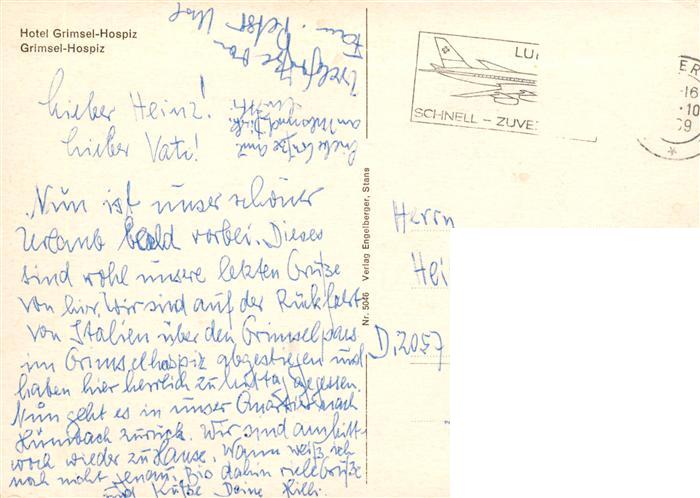 Hotel Grimsel-Hospiz
Grimsel-Hospiz
Lieber Heinz!
Lieber Vati!
Nun ist unser schöner
Urlaub bald vorbei. Dieses
sind wohl unsere letzten Grüße
von hier. Wir sind auf der Rückfahrt
von Italien über den Grimselpass
im Grimselhospiz abgestiegen und
haben hier herrlich zu Mittag gegessen.
Nun geht es in unser Quartier nach
zurück. Wir sind am Mitt-
woch wieder zu Hause. Wann weiß ich
noch nicht genau. Bis dahin viele Grüße
und Küsse Deine
Viele Grüße von
Fam.
Nr. 5046 Verlag Engelberger, Stans
SCHNELL – ZUVE
16
10
Herrn
Hei
D. 2057